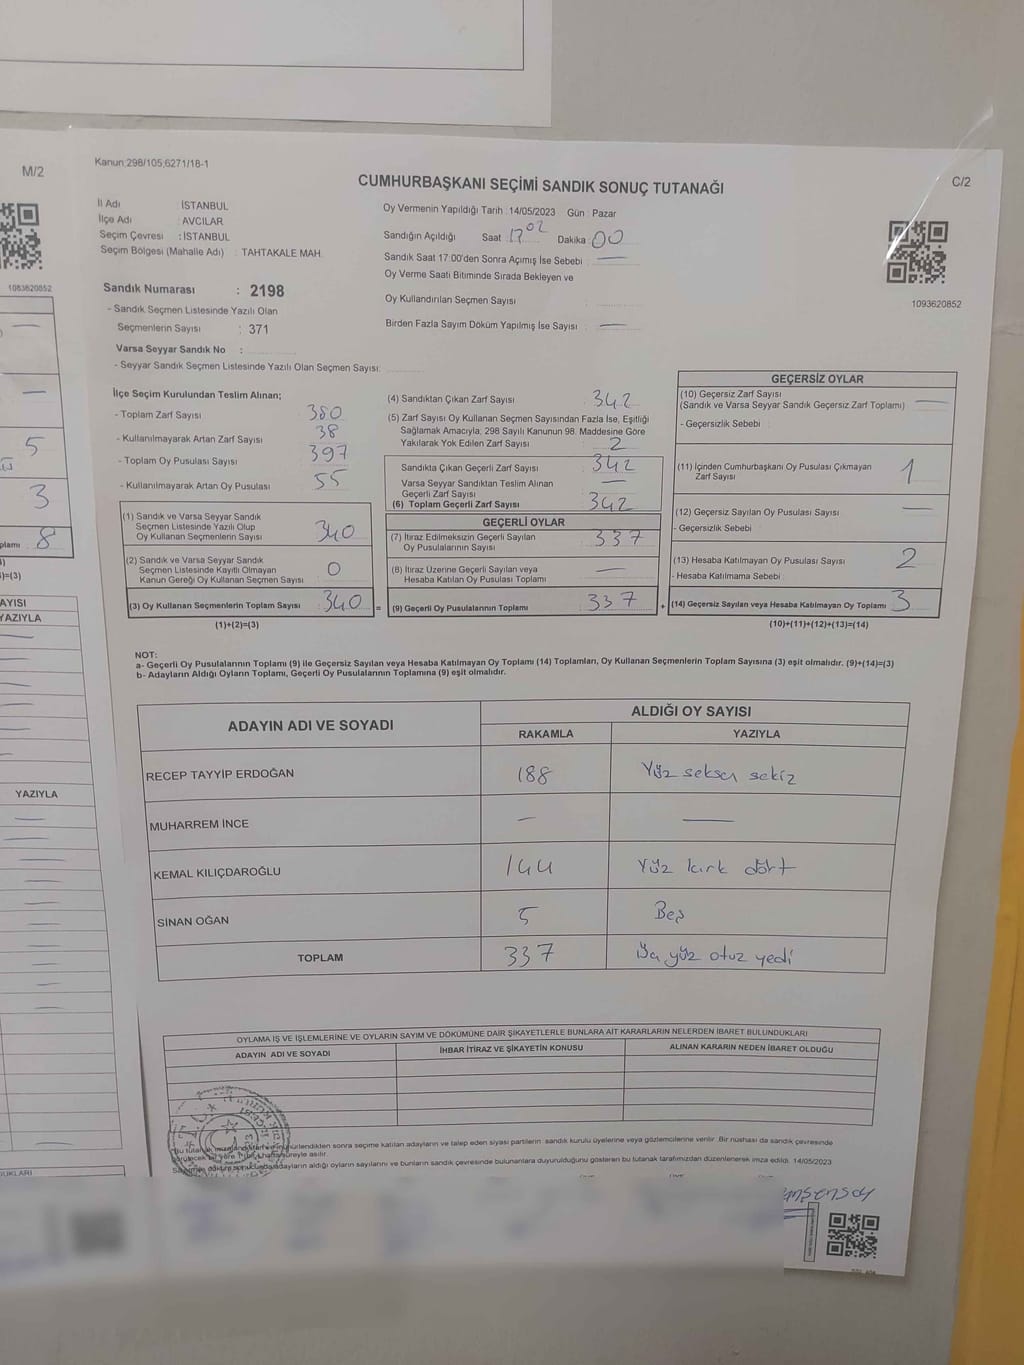 M/2
1083620852
5
3
8
)=(3)
AYISI
YAZIYLA
YAZIYLA
Kanun:298/105;6271/18-1
C/2
CUMHURBAŞKANI SEÇİMİ SANDIK SONUÇ TUTANAĞI
İl Adı : İSTANBUL
İlçe Adı : AVCILAR
Seçim Çevresi : İSTANBUL
Seçim Bölgesi (Mahalle Adı) : TAHTAKALE MAH.
Sandık Numarası : 2198
- Sandık Seçmen Listesinde Yazılı Olan
Seçmenlerin Sayısı : 371
Varsa Seyyar Sandık No :
- Seyyar Sandık Seçmen Listesinde Yazılı Olan Seçmen Sayısı:
Oy Vermenin Yapıldığı Tarih : 14/05/2023 Gün : Pazar
Sandığın Açıldığı Saat 17 02 Dakika 00
Sandık Saat 17.00'den Sonra Açımış İse Sebebi : —
Oy Verme Saati Bitiminde Sırada Bekleyen ve
Oy Kullandırılan Seçmen Sayısı :
Birden Fazla Sayım Döküm Yapılmış İse Sayısı : —
1093620852
İlçe Seçim Kurulundan Teslim Alınan;
- Toplam Zarf Sayısı : 380
- Kullanılmayarak Artan Zarf Sayısı : 38
- Toplam Oy Pusulası Sayısı : 397
- Kullanılmayarak Artan Oy Pusulası : 55
(1) Sandık ve Varsa Seyyar Sandık
Seçmen Listesinde Yazılı Olup
Oy Kullanan Seçmenlerin Sayısı : 340
(2) Sandık ve Varsa Seyyar Sandık
Seçmen Listesinde Kayıtlı Olmayan
Kanun Gereği Oy Kullanan Seçmen Sayısı : 0
(3) Oy Kullanan Seçmenlerin Toplam Sayısı : 340 =
(1)+(2)=(3)
(4) Sandıktan Çıkan Zarf Sayısı : 342
(5) Zarf Sayısı Oy Kullanan Seçmen Sayısından Fazla İse, Eşitliği
Sağlamak Amacıyla, 298 Sayılı Kanunun 98. Maddesine Göre
Yakılarak Yok Edilen Zarf Sayısı : 2
Sandıkta Çıkan Geçerli Zarf Sayısı : 342
Varsa Seyyar Sandıktan Teslim Alınan
Geçerli Zarf Sayısı : —
(6) Toplam Geçerli Zarf Sayısı : 342
GEÇERLİ OYLAR
(7) İtiraz Edilmeksizin Geçerli Sayılan
Oy Pusulalarının Sayısı : 337
(8) İtiraz Üzerine Geçerli Sayılan veya
Hesaba Katılan Oy Pusulası Toplamı : —
(9) Geçerli Oy Pusulalarının Toplamı : 337 +
GEÇERSİZ OYLAR
(10) Geçersiz Zarf Sayısı : —
(Sandık ve Varsa Seyyar Sandık Geçersiz Zarf Toplamı)
- Geçersizlik Sebebi :
(11) İçinden Cumhurbaşkanı Oy Pusulası Çıkmayan
Zarf Sayısı : 1
(12) Geçersiz Sayılan Oy Pusulası Sayısı : —
- Geçersizlik Sebebi :
(13) Hesaba Katılmayan Oy Pusulası Sayısı : 2
- Hesaba Katılmama Sebebi :
(14) Geçersiz Sayılan veya Hesaba Katılmayan Oy Toplamı : 3
(10)+(11)+(12)+(13)=(14)
NOT:
a- Geçerli Oy Pusulalarının Toplamı (9) ile Geçersiz Sayılan veya Hesaba Katılmayan Oy Toplamı (14) Toplamları, Oy Kullanan Seçmenlerin Toplam Sayısına (3) eşit olmalıdır. (9)+(14)=(3)
b- Adayların Aldığı Oyların Toplamı, Geçerli Oy Pusulalarının Toplamına (9) eşit olmalıdır.
ADAYIN ADI VE SOYADI ALDIĞI OY SAYISI
RAKAMLA YAZIYLA
RECEP TAYYİP ERDOĞAN 188 Yüz seksen sekiz
MUHARREM İNCE — —
KEMAL KILIÇDAROĞLU 144 Yüz kırk dört
SİNAN OĞAN 5 Beş
TOPLAM 337 Üç yüz otuz yedi
OYLAMA İŞ VE İŞLEMLERİNE VE OYLARIN SAYIM VE DÖKÜMÜNE DAİR ŞİKAYETLERLE BUNLARA AİT KARARLARIN NELERDEN İBARET BULUNDUKLARI
ADAYIN ADI VE SOYADI İHBAR İTİRAZ VE ŞİKAYETİN KONUSU ALINAN KARARIN NEDEN İBARET OLDUĞU
sonra seçime katılan adayların ve talep eden siyasi partilerin sandık kurulu üyelerine veya gözlemcilerine verilir. Bir nüshası da sandık çevresinde
adayların aldığı oyların sayılarını ve bunların sandık çevresinde bulunanlara duyurulduğunu gösteren bu tutanak tarafımızdan düzenlenerek imza edildi. 14/05/2023